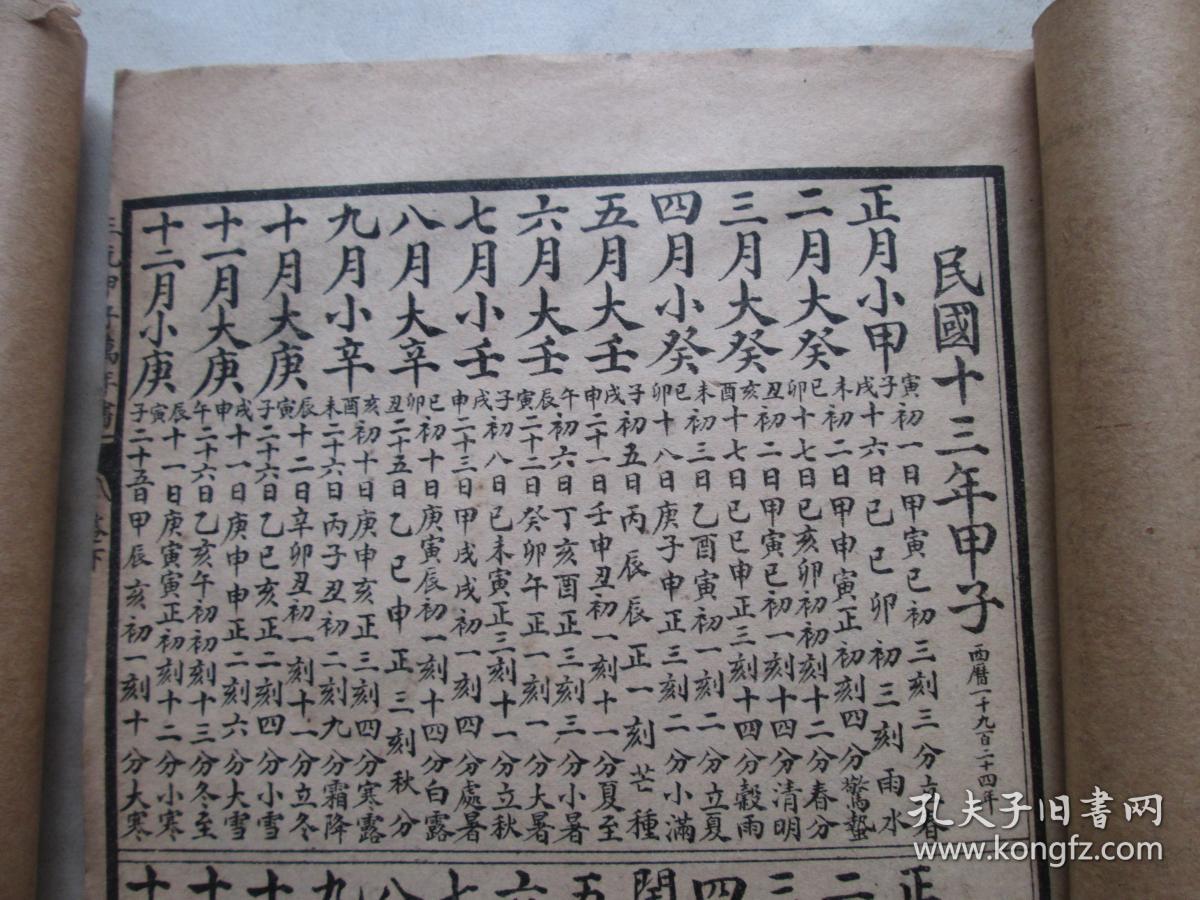 民國十三年甲子 西曆一千九百二十四年
正月小甲 寅子戌
初一日甲寅巳初三刻三分立春
十六日己巳卯初三刻雨水
二月大癸 未巳卯
初二日甲申寅正初刻四分驚蟄
十七日己亥卯初初刻十二分春分
三月大癸 丑亥酉
初二日甲寅巳初一刻十四分清明
十七日己巳申正三刻十四分穀雨
四月小癸 未巳卯
初三日乙酉寅初一刻二分立夏
十八日庚子申正三刻二分小滿
五月大壬 子戌申
初五日丙辰辰正一刻芒種
二十一日壬申丑初一刻十一分夏至
六月大壬 午辰寅
初六日丁亥酉正三刻三分小暑
二十二日癸卯午正一刻一分大暑
七月小壬 子戌申
初八日己未寅正三刻十一分立秋
二十三日甲戌戌初一刻四分處暑
八月大辛 巳卯丑
初十日庚寅辰初一刻十四分白露
二十五日乙巳申正三刻秋分
九月小辛 亥酉未
初十日庚申亥正三刻四分寒露
二十六日丙子丑初二刻九分霜降
十月大庚 辰寅子
十二日辛卯丑初一刻十一分立冬
二十六日乙巳亥正二刻四分小雪
十一月大庚 戌申午
十一日庚申申正二刻六分大雪
二十六日乙亥午初初刻十三分冬至
十二月小庚 辰寅子
十一日庚寅寅正初刻十二分小寒
二十五日甲辰亥初一刻十分大寒
正
二
三
四
閏
五
六
七
八
九
十
十
十
孔夫子旧书网
www.kongfz.com